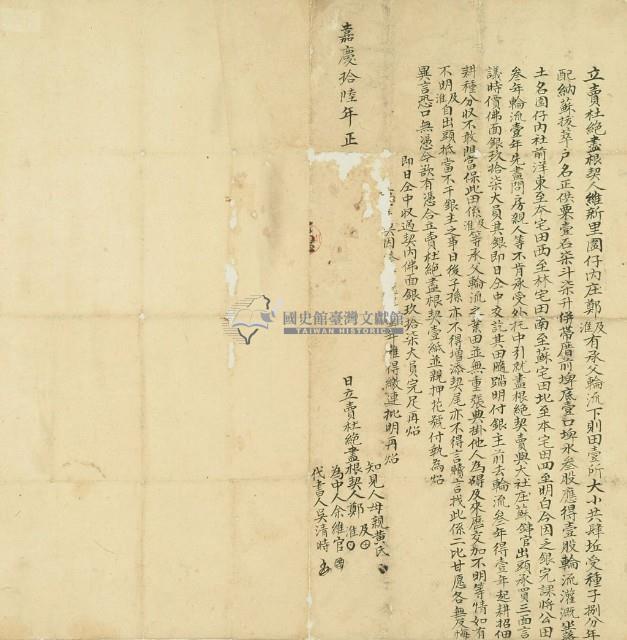 立賣杜絕盡根契人維新里園仔內庄鄭及淮有承父輪流下則田壹所大小共肆坵受種子捌分年
配納蘇拔萃戶名正供粟壹石柒斗柒升併帶厝前埤底壹口埤水叁股應得壹股輪流灌溉坐
土名園仔內社前洋東至本宅田西至林宅田南至蘇宅田北至本宅田四至明白今因乏銀完課將公田
叁年輪流壹年先盡問房親人等不肯承受外托中引就盡根絕契賣與大社庄蘇官出頭承買三面言
議時價佛面銀玖拾柒大員其銀即日仝中交訖其田隨踏明付銀主前去輪流叁年得壹年起耕招佃
耕種分收不敢阻當保此田係及淮等承父輪流之業田並無重張典掛他人為碍及來歷交加不明等情如有
不明及淮自出頭抵當不干銀主之事日後子孫亦不得增添契尾亦不得言贖言找此係二比甘愿各無反悔
異言恐口無憑今欲有憑合立賣杜絕盡根契壹紙並親押花號付執為炤
即日仝中收過契內佛面銀玖拾柒大員完足再炤
難得繳連批明再炤
知見人母親黃氏
嘉慶拾陸年正
日立賣杜絕盡根契人鄭及淮
為中人余維官
代書人吳清時
國史館臺灣文獻館
TAIWAN HISTORICA